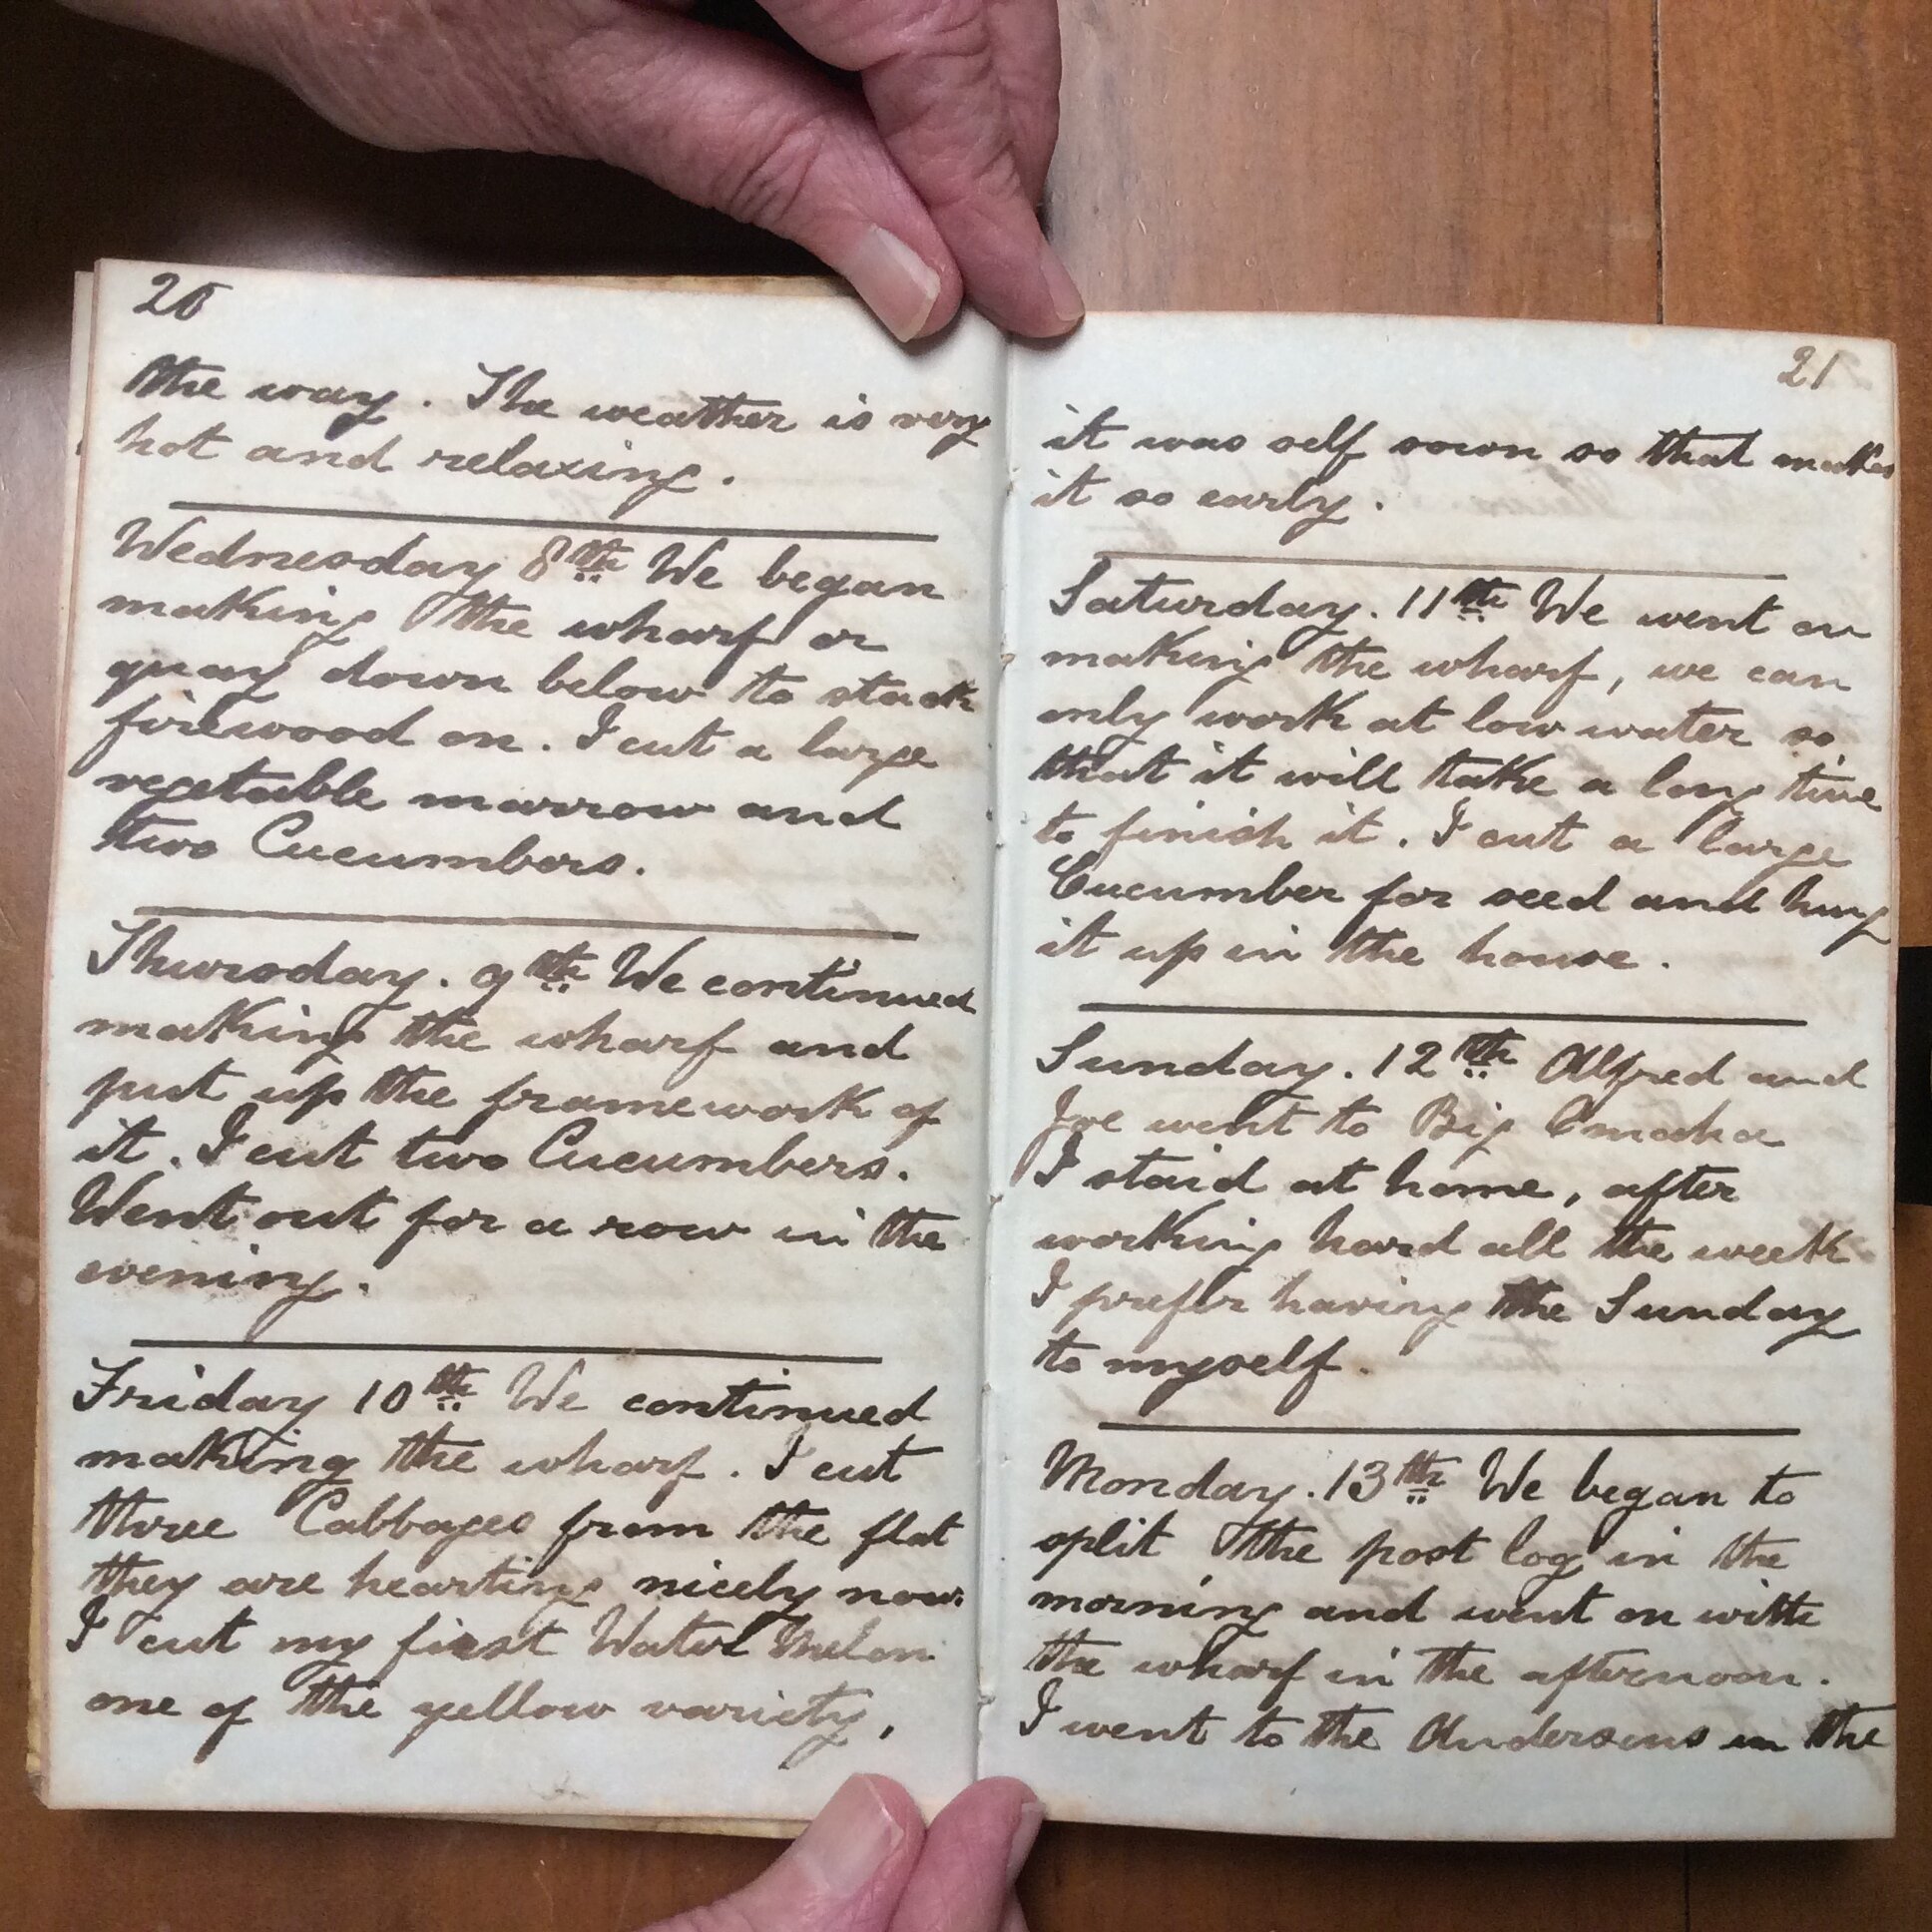 20
the way. The weather is very
hot and relaxing.
Wednesday 8th We began
making the wharf or
quay down below to stack
firewood on. I cut a large
vegetable marrow and
two Cucumbers.
Thursday. 9th We continued
making the wharf and
put up the framework of
it. I cut two Cucumbers.
Went out for a row in the
evening.
Friday 10th We continued
making the wharf. I cut
three Cabbages from the flat
they are hearting nicely now.
I cut my first Water Melon
one of the yellow variety,
21
it was self sown so that makes
it so early.
Saturday. 11th We went on
making the wharf, we can
only work at low water so
that it will take a long time
to finish it. I cut a large
Cucumber for seed and hung
it up in the house.
Sunday. 12th Alfred and
Joe went to Big Omaha
I staid at home, after
working hard all the week
I prefer having the Sunday
to myself.
Monday. 13th We began to
split the post log in the
morning and went on with
the wharf in the afternoon.
I went to the Andersons in the